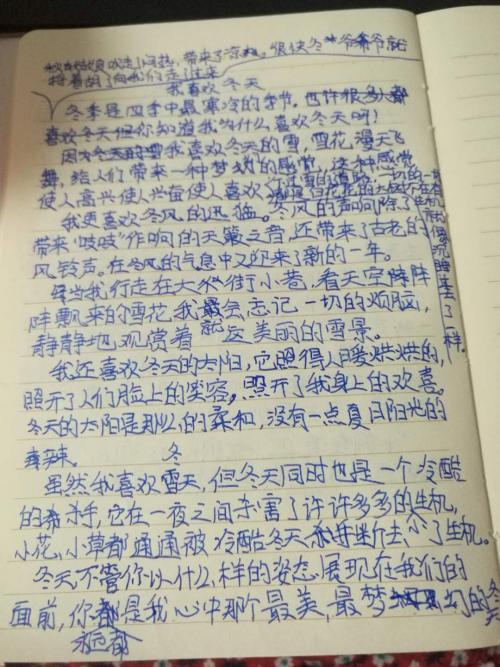 带来了凉 很快冬爷爷就
捋着胡子向我们走了过来
我喜欢冬天
冬季是四季中最寒冷的季节。也许很多人都
喜欢冬天但你知道我为什么喜欢冬天吗?
因为我喜欢冬天的雪,雪花漫天飞
舞,给人们带来一种梦幻的感觉,这种感觉
使人高兴使人兴奋使人喜欢
我更喜欢冬风的迅猛。冬风的声响除了
带来“吱吱”作响的天籁之音,还带来了古老的
风铃声。在冬风的气息中又迎来了新的一年。
每当我行走在大街小巷,看天空阵阵
阵飘来的雪花,我就会忘记一切的烦脑,
静静地观赏着这美丽的雪景。
我还喜欢冬天的太阳,它照得人暖烘烘的,
照开了人们脸上的笑容,照开了我身上的欢喜。
冬天的太阳是那么的柔和,没有一点夏日阳光的
毒辣。
虽然我喜欢雪天,但冬天同时也是一个冷酷
的杀手,它在一夜之间杀害了许许多多的生机,
小花,小草都通通被冷酷冬天杀手断去了生机。
冬天不管你以什么样的姿态展现在我们的
面前,你永远都是我心中那个最美,最梦幻的冬
天